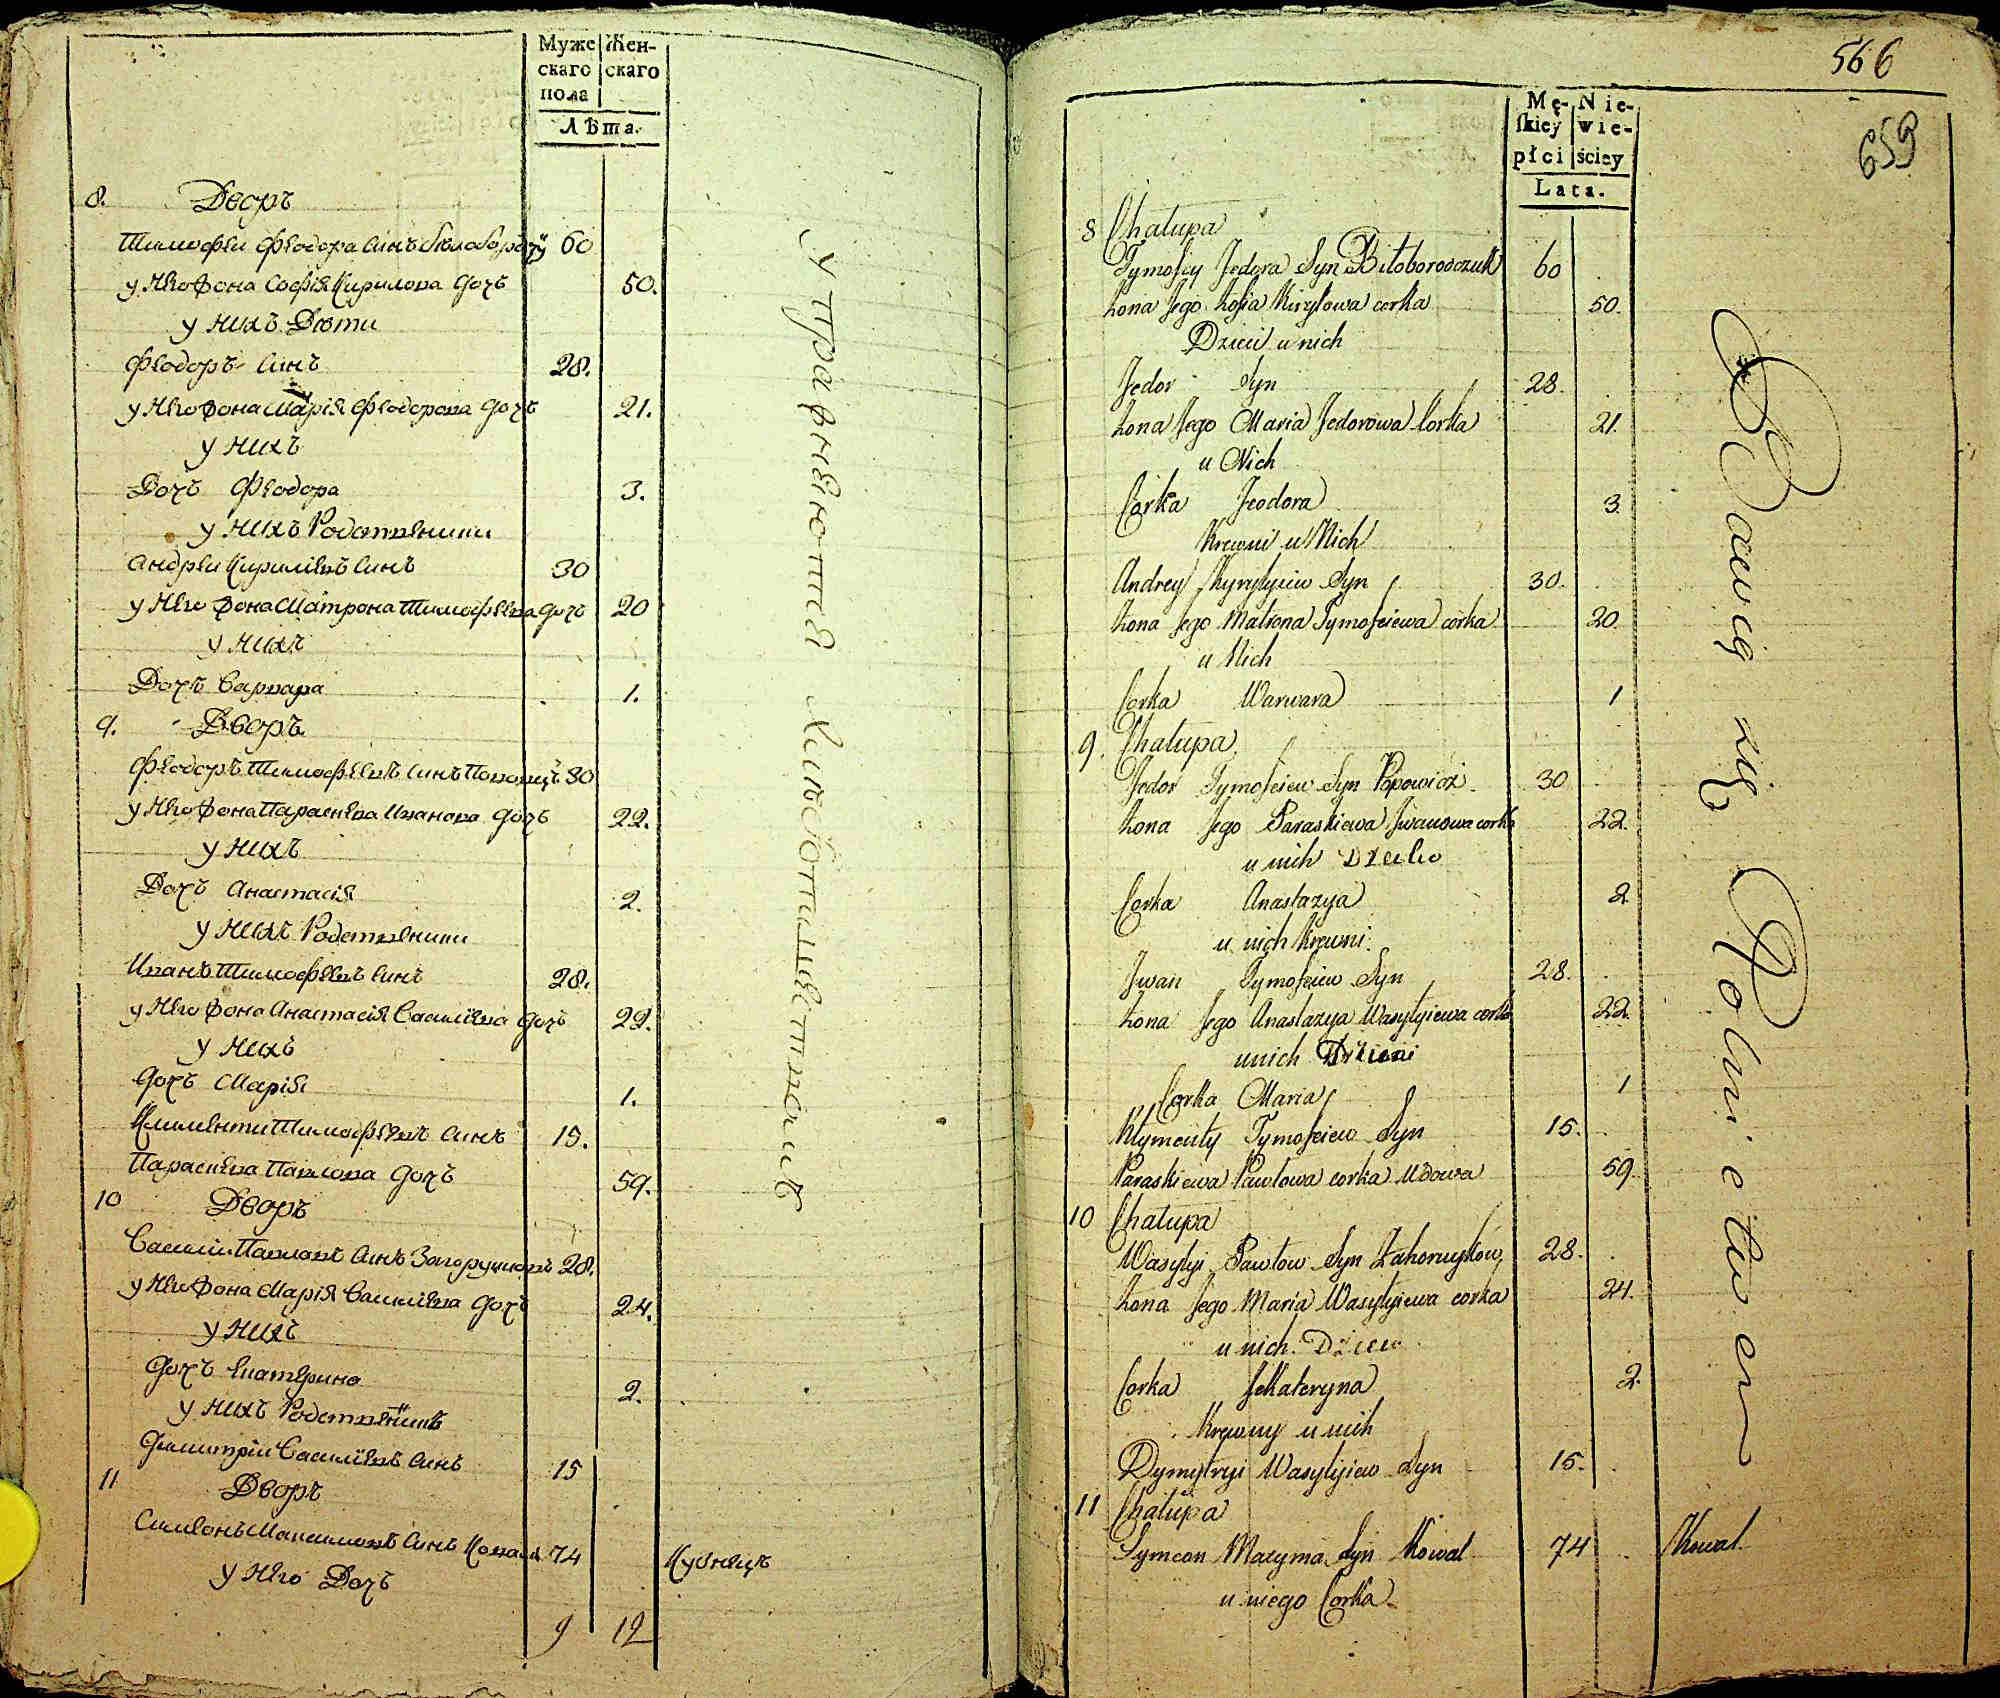 Муже Жен-
скаго скаго
пола
Лѣта.
8. Дворъ
Тимофеи Феодора Синъ Билобородчу 60
у Него Жона Софія Кирилова дочъ 50.
у нихъ Дѣти
Феодоръ Синъ 28.
у Него Жона Марія Феодорова дочъ 21.
у нихъ
Дочъ Феодора 3.
у нихъ Родственники
Андреи Кириліевъ Синъ 30
у Него Жона Матрона Тимофѣева дочъ 20
у нихъ
Дочъ Варвара 1.
9. Дворъ
Феодоръ Тимофѣевъ Синъ Поповичъ 30
у Него Жона Параскева Иванова дочъ 22.
у нихъ
Дочъ Анастасія 2.
у нихъ Родственники
Иванъ Тимофѣевъ Синъ 28.
у Него Жона Анастасія Василіева дочъ 22.
у нихъ
дочъ Марія 1.
Климентии Тимофѣевъ Синъ 15.
Параскева Павлова дочъ 59.
10 Дворъ
Василіи Павловъ Синъ Загоруиковъ 28.
у Него Жона Марія Василіева дочъ 24.
у нихъ
дочъ Екатерина 2.
у нихъ Родственникъ
Димитріи Василіевъ Синъ 15
11 Дворъ
Симеонъ Максимовъ Синъ Коваль 74 Кузнецъ
у Него Дочъ
9 12
упражняются хлебопашествомъ
566
659
Mę- Nie-
skiey wie-
płci ściey
Lata.
8 Chałupa
Tymofiey Fedora Syn Biłoborodczuk 60
Żona Jego Zofia Kiryłowa corka 50.
Dzieci u nich
Fedor Syn 28
Żona Jego Maria Fedorowa Corka 21.
u Nich
Corka Feodora 3
Krewni u Nich
Andrey Kyryłyiew Syn 30.
Żona Jego Matrona Tymofeiewa corka 20.
u Nich
Corka Warwara 1
9. Chałupa.
Fedor Tymofeiew Syn Popowicz 30
Żona Jego Paraskiewa Iwanowa corka 22.
u nich Dziecko
Corka Anastazya 2
u nich Krewni.
Iwan Tymofeiew Syn 28.
Żona Jego Anastazya Wasylyiewa corka 22.
u nich Dzieci
Corka Maria 1
Klymenty Tymofeiew Syn 15.
Paraskiewa Pawłowa corka Wdowa 59
10 Chałupa
Wasylyi Pawłow Syn Zahoruykow 28.
Żona Jego Maria Wasylyiewa corka 24.
u nich Dziecie
Corka Jekateryna 2.
Krewny u nich
Dymytryi Wasylyiew Syn 15.
11 Chałupa
Symeon Maxyma Syn Kowal 74 Kowal
u niego Corka
Bawią się Rolnictwem